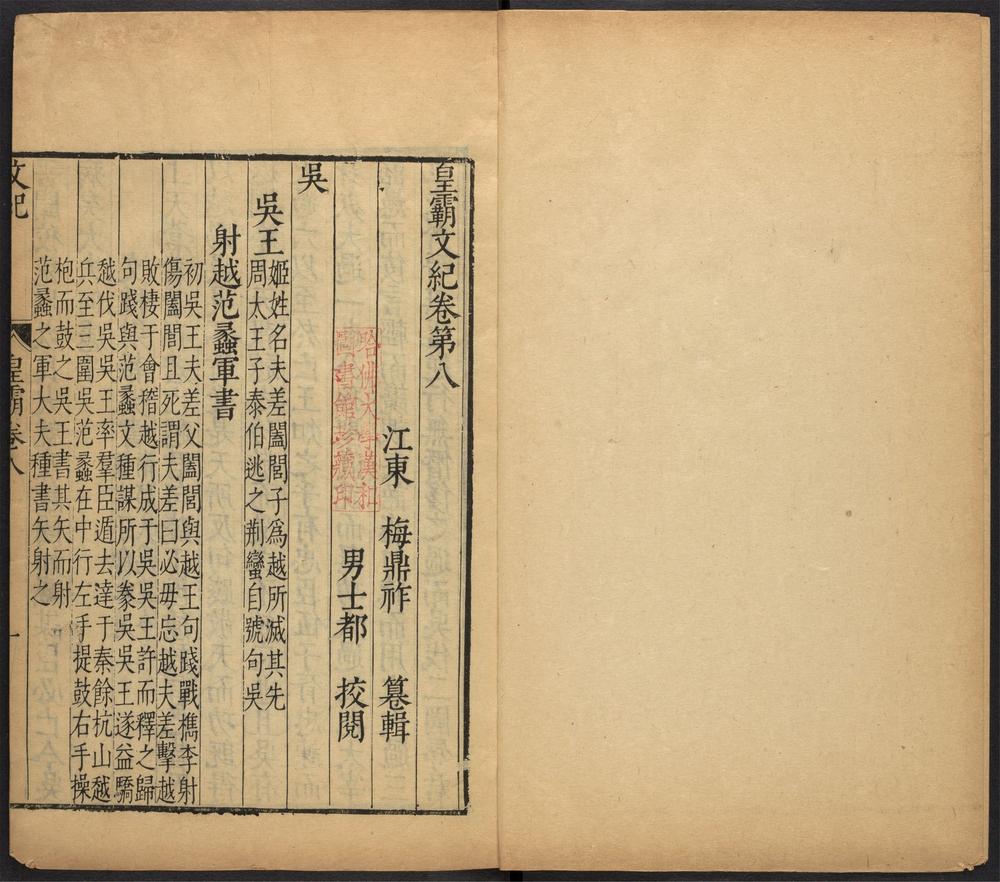 皇霸文紀卷第八
江東 梅鼎祚 纂輯
男士都 挍閱
吳
吳王
姬姓名夫差闔閭子爲越所滅其先
周太王子泰伯逃之荆蠻自號句吳
射越范蠡軍書
初吳王夫差父闔閭與越王句踐戰檇李射
傷闔閭且死謂夫差曰必毋忘越夫差擊越
敗棲于會稽越行成于吳吳王許而釋之歸
句踐與范蠡文種謀所以豢吳吳王遂益驕
越伐吳吳王率羣臣遁去達于秦餘杭山越
兵至三圍吳范蠡在中行左手提鼓右手操
枹而鼓之吳王書其矢而射
范蠡之軍大夫種書矢射之
文紀
皇霸卷八
一
哈佛大學漢和
圖書館珍藏印